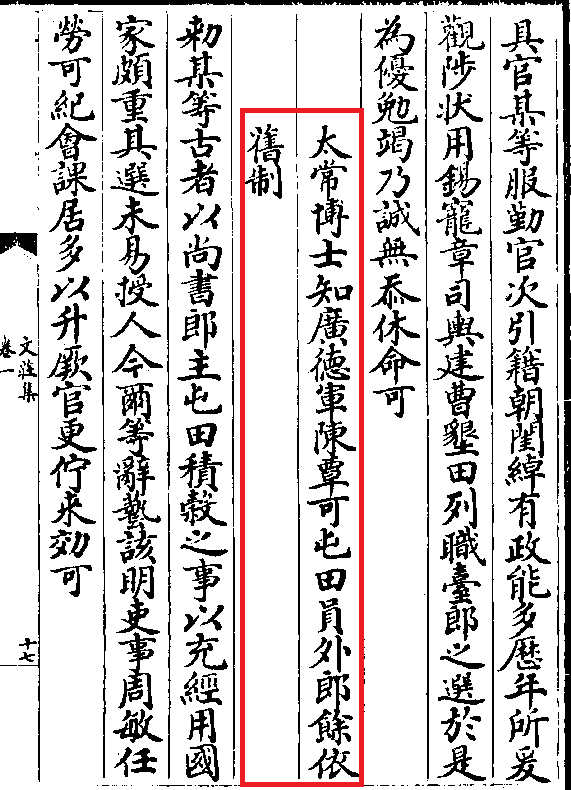 具官某等服勤官次引籍朝閨綽有政能多歷年所爰
觀陟状用錫寵章司輿建曹墾田列職臺郎之選於是
為優勉竭乃誠無忝休命可
太常博士知廣德軍陳覃可屯田員外郎餘依
舊制
勑某等古者以尚書郎主屯田積榖之事以充經用國
家頗重其選未易授人今爾等辭藝該明吏事周敏任
勞可紀會課居多以升厥官更佇来効可
文莊集
卷一
十七